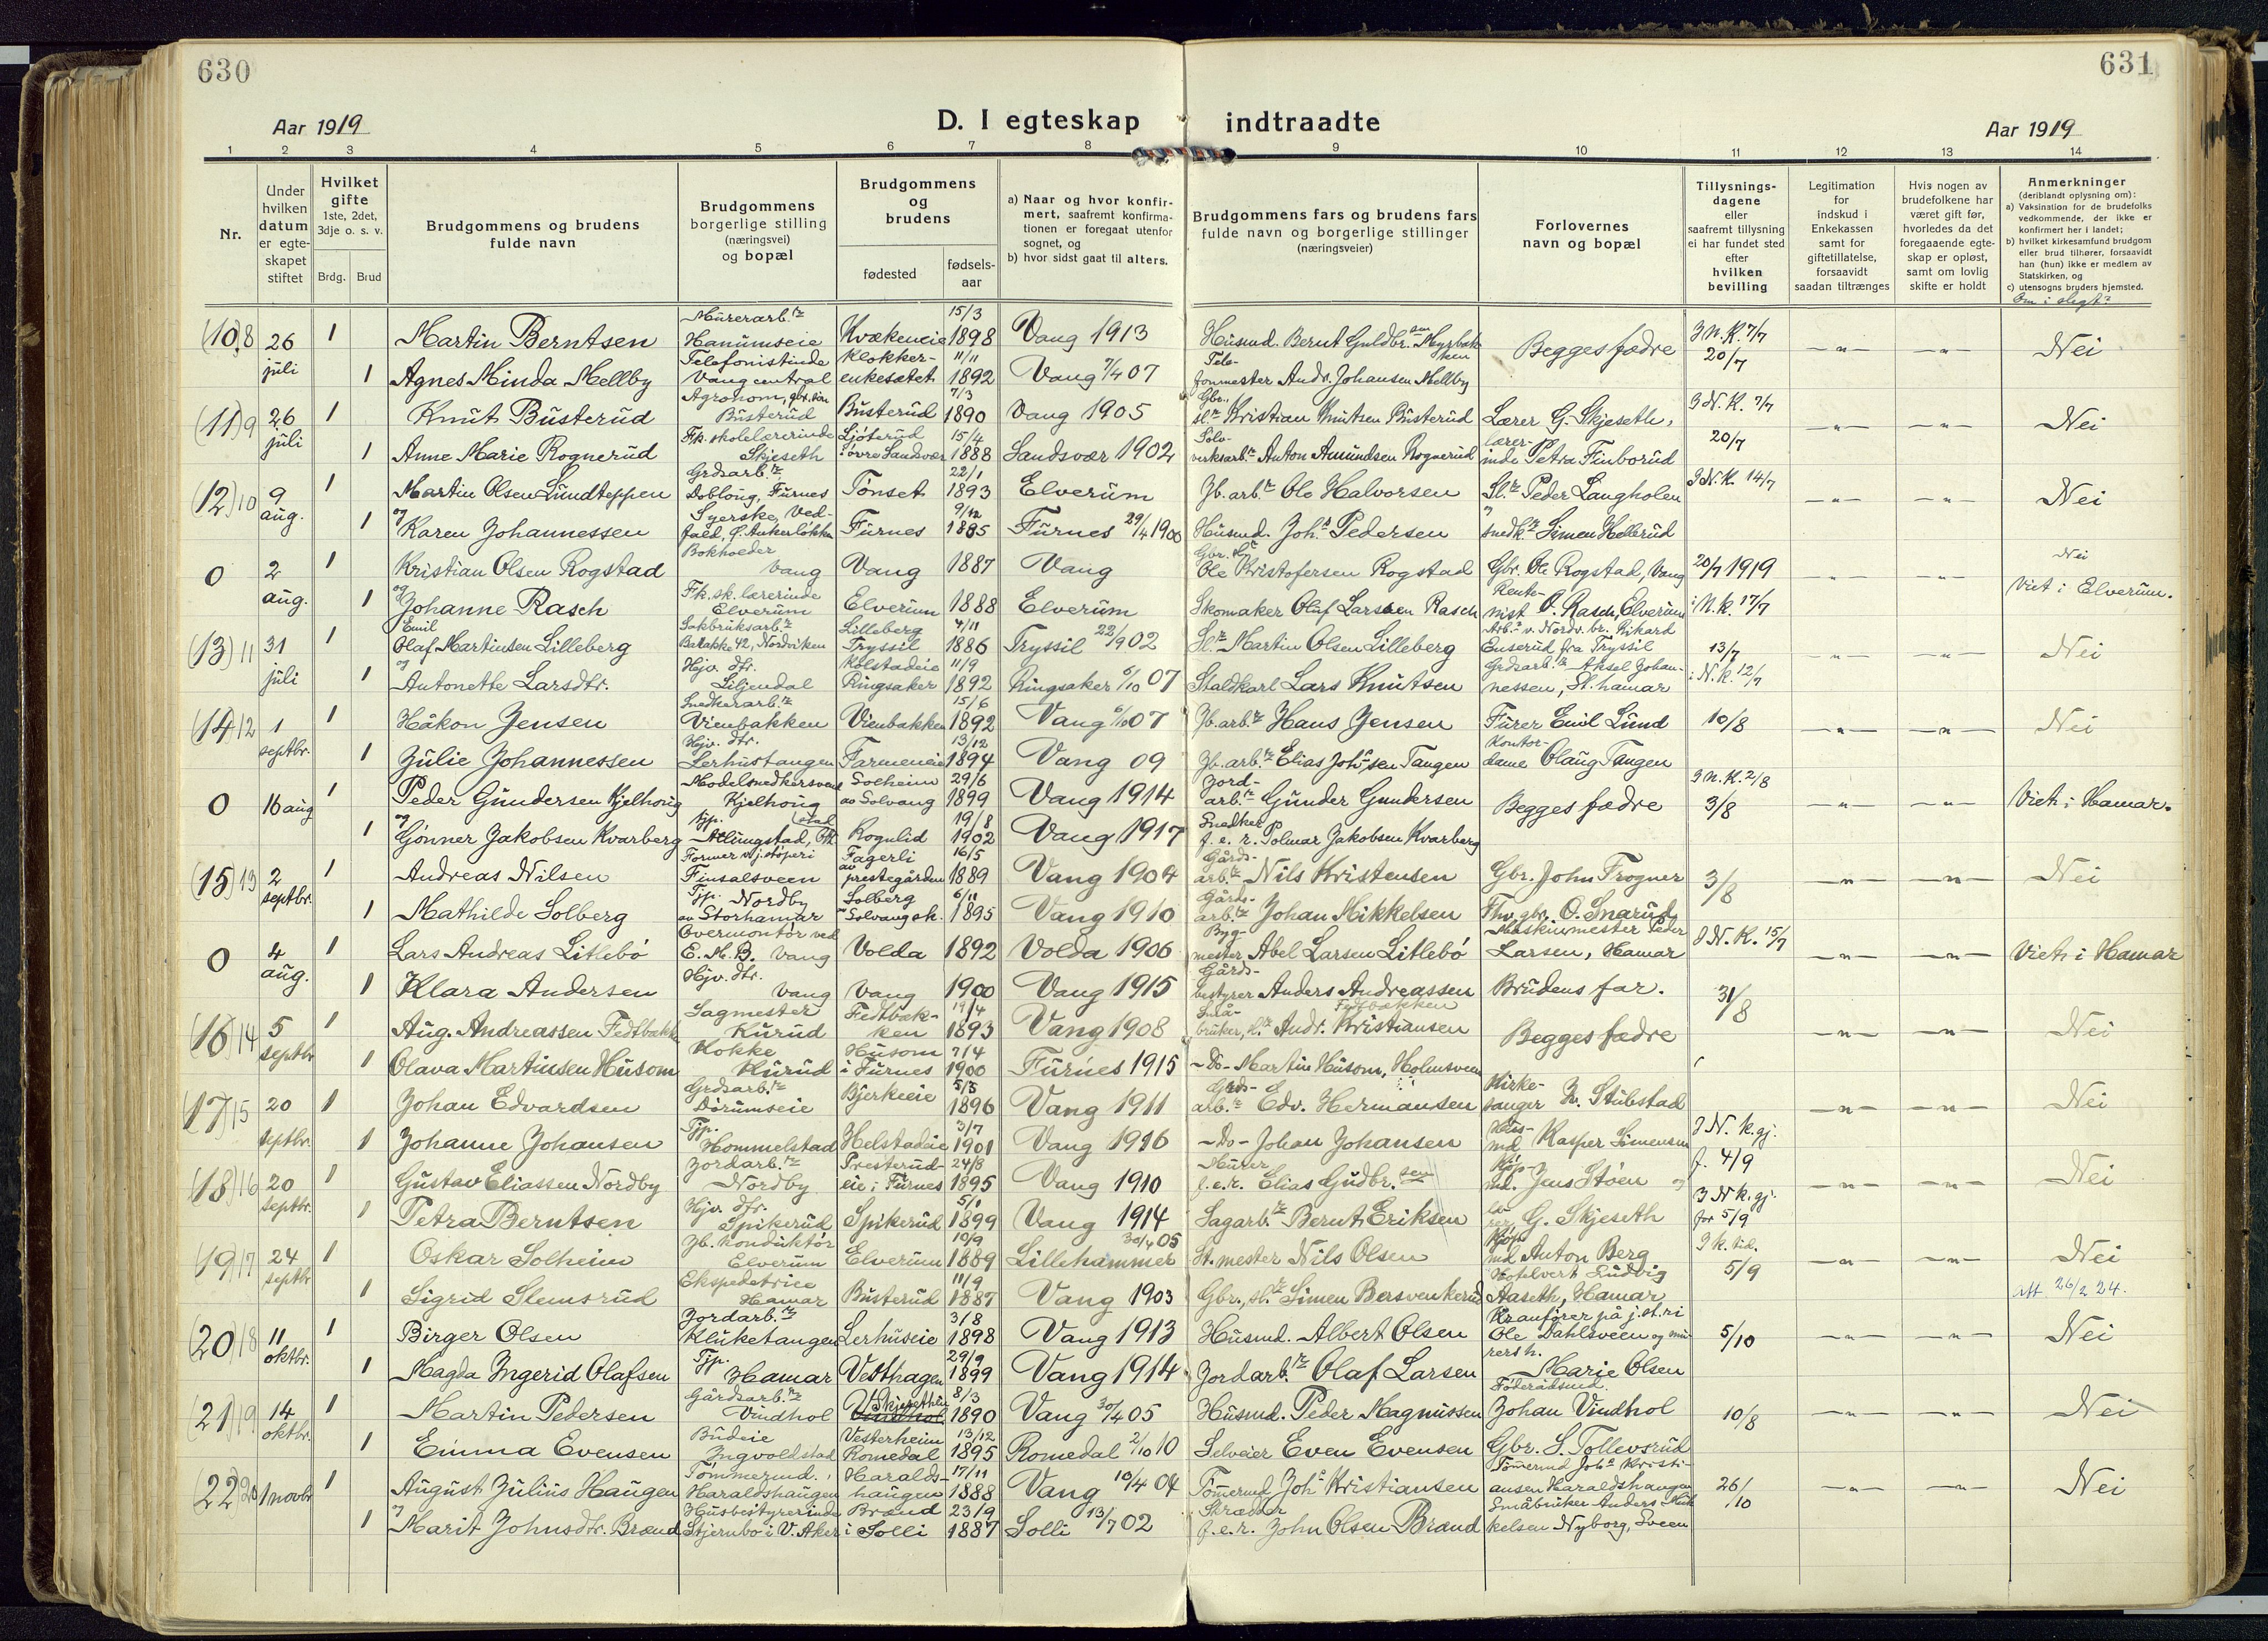 630
631
Aar 1919
D. I egteskap indtraadte
Aar 1919
1 2 3 4 5 6 7 8 9 10 11 12 13 14
Nr.
Under hvilken datum er egte-skapet stiftet
Hvilket gifte
1ste, 2det, 3dje o. s. v.
Brdg. Brud
Brudgommens og brudens fulde navn
Brudgommens borgerlige stilling (næringsvei) og bopæl
Brudgommens og brudens
fødested
fødsels-aar
a) Naar og hvor konfir-mert, saafremt konfirma-tionen er foregaat utenfor sognet, og
b) hvor sidst gaat til alters.
Brudgommens fars og brudens fars fulde navn og borgerlige stillinger (næringsveier)
Forlovernes navn og bopæl
Tillysnings-dagene eller saafremt tillysning ei har fundet sted efter hvilken bevilling
Legitimation for indskud i Enkekassen samt for giftetillatelse, forsaavidt saadan tiltrænges
Hvis nogen av brudefolkene har været gift før, hvorledes da det foregaaende egte-skap er opløst, samt om lovlig skifte er holdt
Anmerkninger
(deriblandt oplysning om):
a) Vaksination for de brudefolks vedkommende, der ikke er konfirmert her i landet;
b) hvilket kirkesamfund brudgom eller brud tilhører, forsaavidt han (hun) ikke er medlem av Statskirken, og
c) utensogns bruders hjemsted.
Om i slegt?
(10) 8 26 juli 1 Martin Berntsen Murerarb.r Hanumseie Kvækeneie 15/3 1898 Vang 1913 Husmd. Bernt Guldbr.sen Myrbakken Begges fædre J N.K. 7/7 20/7 -"- -"- Nei
1 Agnes Minda Mellby Telefonistinde Vang central Klokker-enkesætet 11/11 1892 Vang 7/4 07 Telefonmester Andr. Johansen Mellby
(11) 9 26 juli 1 Knut Busterud Agronom, gbr.søn Busterud Busterud 7/3 1890 Vang 1905 Gbr., sl.r Kristian Knutsen Busterud Lærer G. Skjeseth, J N.K. 7/7 20/7 -"- -"- Nei
1 Anne Marie Rognerud Fk. skolelærerinde Skjeseth Ljøterud i øvre Sandsvær 15/4 1888 Sandsvær 1902 Sølvverksarb.r Anton Amundsen Rognerud lærerinde Petra Finborud
(12) 10 9 aug. 1 Martin Olsen Lundteppen Grdsarb.r Doblong, Furnes Tønset 22/1 1893 Elverum Jb.arb.r Ole Halvorsen Sl.r Peder Langholen J N.K. 14/7 -"- -"- Nei
1 og Karen Johannessen Syerske, Vedfald, Ø. Ankerløkken Furnes 9/12 1885 Furnes 29/4 1900 Husmd. Joh.s Pedersen og snedk.r Simen Hellerud
0 2 aug. 1 Kristian Olsen Rogstad Bokholder Vang Vang 1887 Vang Gbr. Ole Kristofersen Rogstad Gbr. Ole Rogstad, Vang 20/7 1919 -"- -"- Nei Viet i Elverum.
1 og Johanne Rasch Fk. sk. lærerinde Elverum Elverum 1888 Elverum Skomaker Olaf Larssen Rasch Rentenist O. Rasch, Elverum i N.K. 17/7
(13) 11 31 juli 1 Emil Olaf Martinsen Lilleberg Sakbruksarb.r Barakke 42, Nordviken Lilleberg Tryssil 4/11 1886 Tryssil 22/9 02 Sl.r Martin Olsen Lilleberg Arb.r v. Nordv. br. Rikard Enserud fra Tryssil 13/7 -"- -"- Nei
1 og Antonette Larsdtr. Hjv. dtr. Liljendal Kolstadeie Ringsaker 11/9 1892 Ringsaker 6/10 07 Staldkarl Lars Knutsen Grdsarb.r Aksel Johannessen, St. hamar i N.K. 12/7
(14) 12 1 septbr. 1 Håkon Jensen Snedkerarb.r Vienbakken Vienbakken 15/6 1892 Vang 6/10 07 Jb.arb.r Hans Jensen Furer Emil Lund 10/8 -"- -"- Nei
1 Julie Johannessen Hjv. dtr. Lerhustangen Farmeneie 13/12 1894 Vang 09 Jb.arb.r Elias Joh.ssen Tangen Kontordame Olaug Tangen
0 16 aug 1 Peder Gundersen Kjelhoug Modelsnedkersvend Kjelhoug Solheim av Solvang 29/6 1899 Vang 1914 Jordarb.r Gunder Gundersen Begges fædre J N.K. 2/8 3/8 -"- -"- Viet i Hamar.
1 og Gønner Jakobsen Kvarberg tjp. Atlungstad, Ott. stad Rognlid 19/8 1902 Vang 1917 Snedker f.e.r. Polmar Jakobsen Kvarberg
(15) 13 2 septbr. 1 Andreas Nilsen Former v. j.støperi Finsalsveen Fagerli av prestegården 16/5 1889 Vang 1904 Gårdsarb.r Nils Kristensen Gbr. John Frogner 3/8 -"- -"- Nei
1 Mathilde Solberg Tjp. Nordby av Storhamar Solberg Solvang sk. 6/11 1895 Vang 1910 Gårdsarb.r Johan Mikkelsen Fhv. gbr. O. Snarud
0 4 aug. 1 Lars Andreas Litlebø Overmontør ved E.M.B. Vang Volda 1892 Volda 1906 Bygmester Abel Larsen Litlebø Maskinmester Peder Larsen, Hamar J N.K. 15/7 -"- -"- Viet i Hamar
1 Klara Andersen Hjv. dtr. Vang Vang 1900 Vang 1915 Gårdsbestyrer Anders Andreassen Brudens far.
(16) 14 5 septbr 1 Aug. Andreassen Fedtbakk Sagmester Kurud Fedtbakken 19/4 1893 Vang 1908 Småbruker, sl.r Andr. Kristiansen Fedtbakken Begges fædre 31/8 -"- -"- Nei
1 Olava Martinsen Husom Kokke Kurud Husom i Furnes 7/4 1900 Furnes 1915 -Do- Martin Husom, Holmsveen
(17) 15 20 septbr. 1 Johan Edvardsen Grdsarb.r Dørumseie Bjerkeeie 5/5 1896 Vang 1911 Grdsarb.r Edv. Hermansen Kirkesanger Stubstad -"- -"- Nei
1 Johanne Johansen Tjp. Hommelstad Helstadeie 3/7 1901 Vang 1916 -Do- Johan Johansen Husmd Kasper Simensen J N.K. gj. f. 4/9
(18) 16 20 septbr. 1 Gustav Eliassen Nordby Jordarb.r Nordby Presterudeie i Furnes 24/8 1895 Vang 1910 Murer f.e.r. Elias Gudbr.sen Kjøpmd. Jens Støen og -"- -"- Nei
1 Petra Berntsen Hjv. dtr. Spikerud Spikerud 5/1 1899 Vang 1914 Sagarb.r Bernt Eriksen lærer G. Skjeseth J N.K. gj. for 5/9
(19) 17 24 septbr 1 Oskar Solheim Jb. konduktør Elverum Elverum 10/9 1889 Lillehammer 30/4 05 St.mester Nils Olsen Kjøpmd Anton Berg J k. tid. 5/9 -"- -"- Nei
1 Sigrid Slemsrud Ekspeditrice Hamar Busterud 11/9 1887 Vang 1903 Gbr., sl.r Simen Bersvenkerud Hotelvert Ludvig Aaseth, Hamar att. 26/2 24.
(20) 18 11 oktbr. 1 Birger Olsen Jordarb.r Kluketangen Lerhuseie 3/8 1898 Vang 1913 Husmd. Albert Olsen Kranfører på j.st.ri Ole Dahlsveen og murersh. 5/10 -"- -"- Nei
1 Magda Ingerid Olafsen Tjp. Hamar Vesthagen 29/9 1899 Vang 1914 Jordarb.r Olaf Larsen Marie Olsen
(21) 19 14 oktbr. 1 Martin Pedersen Gårdsarb.r Vindhol Skjesethlu 8/3 1890 Vang 30/4 05 Husmd. Peder Magnussen Føderådsmd. Johan Vindhol 10/8 -"- -"- Nei
1 Emma Evensen Budeie Ingvoldstad Vesterheim Romedal 13/12 1895 Romedal 2/10 10 Selveier Even Evensen Gbr. S. Tollevsrud
(22) 20 1 novbr 1 August Julius Haugen Tømmermd. Haraldshaugen Haraldshaugen 17/11 1888 Vang 10/4 04 Tømmermd Joh.s Kristiansen Tømmermd Joh.s Kristiansen Haraldshaugen 26/10 -"- -"- Nei
1 og Marit Johnsdtr. Brænd Husbestyrerinde Stjernbo i V. Aker Brænd i Solli 23/9 1887 Solli 13/7 02 Skrædder f.e.r. John Olsen Brænd Småbruker Anders Mikkelsen Nyborg, Sveen